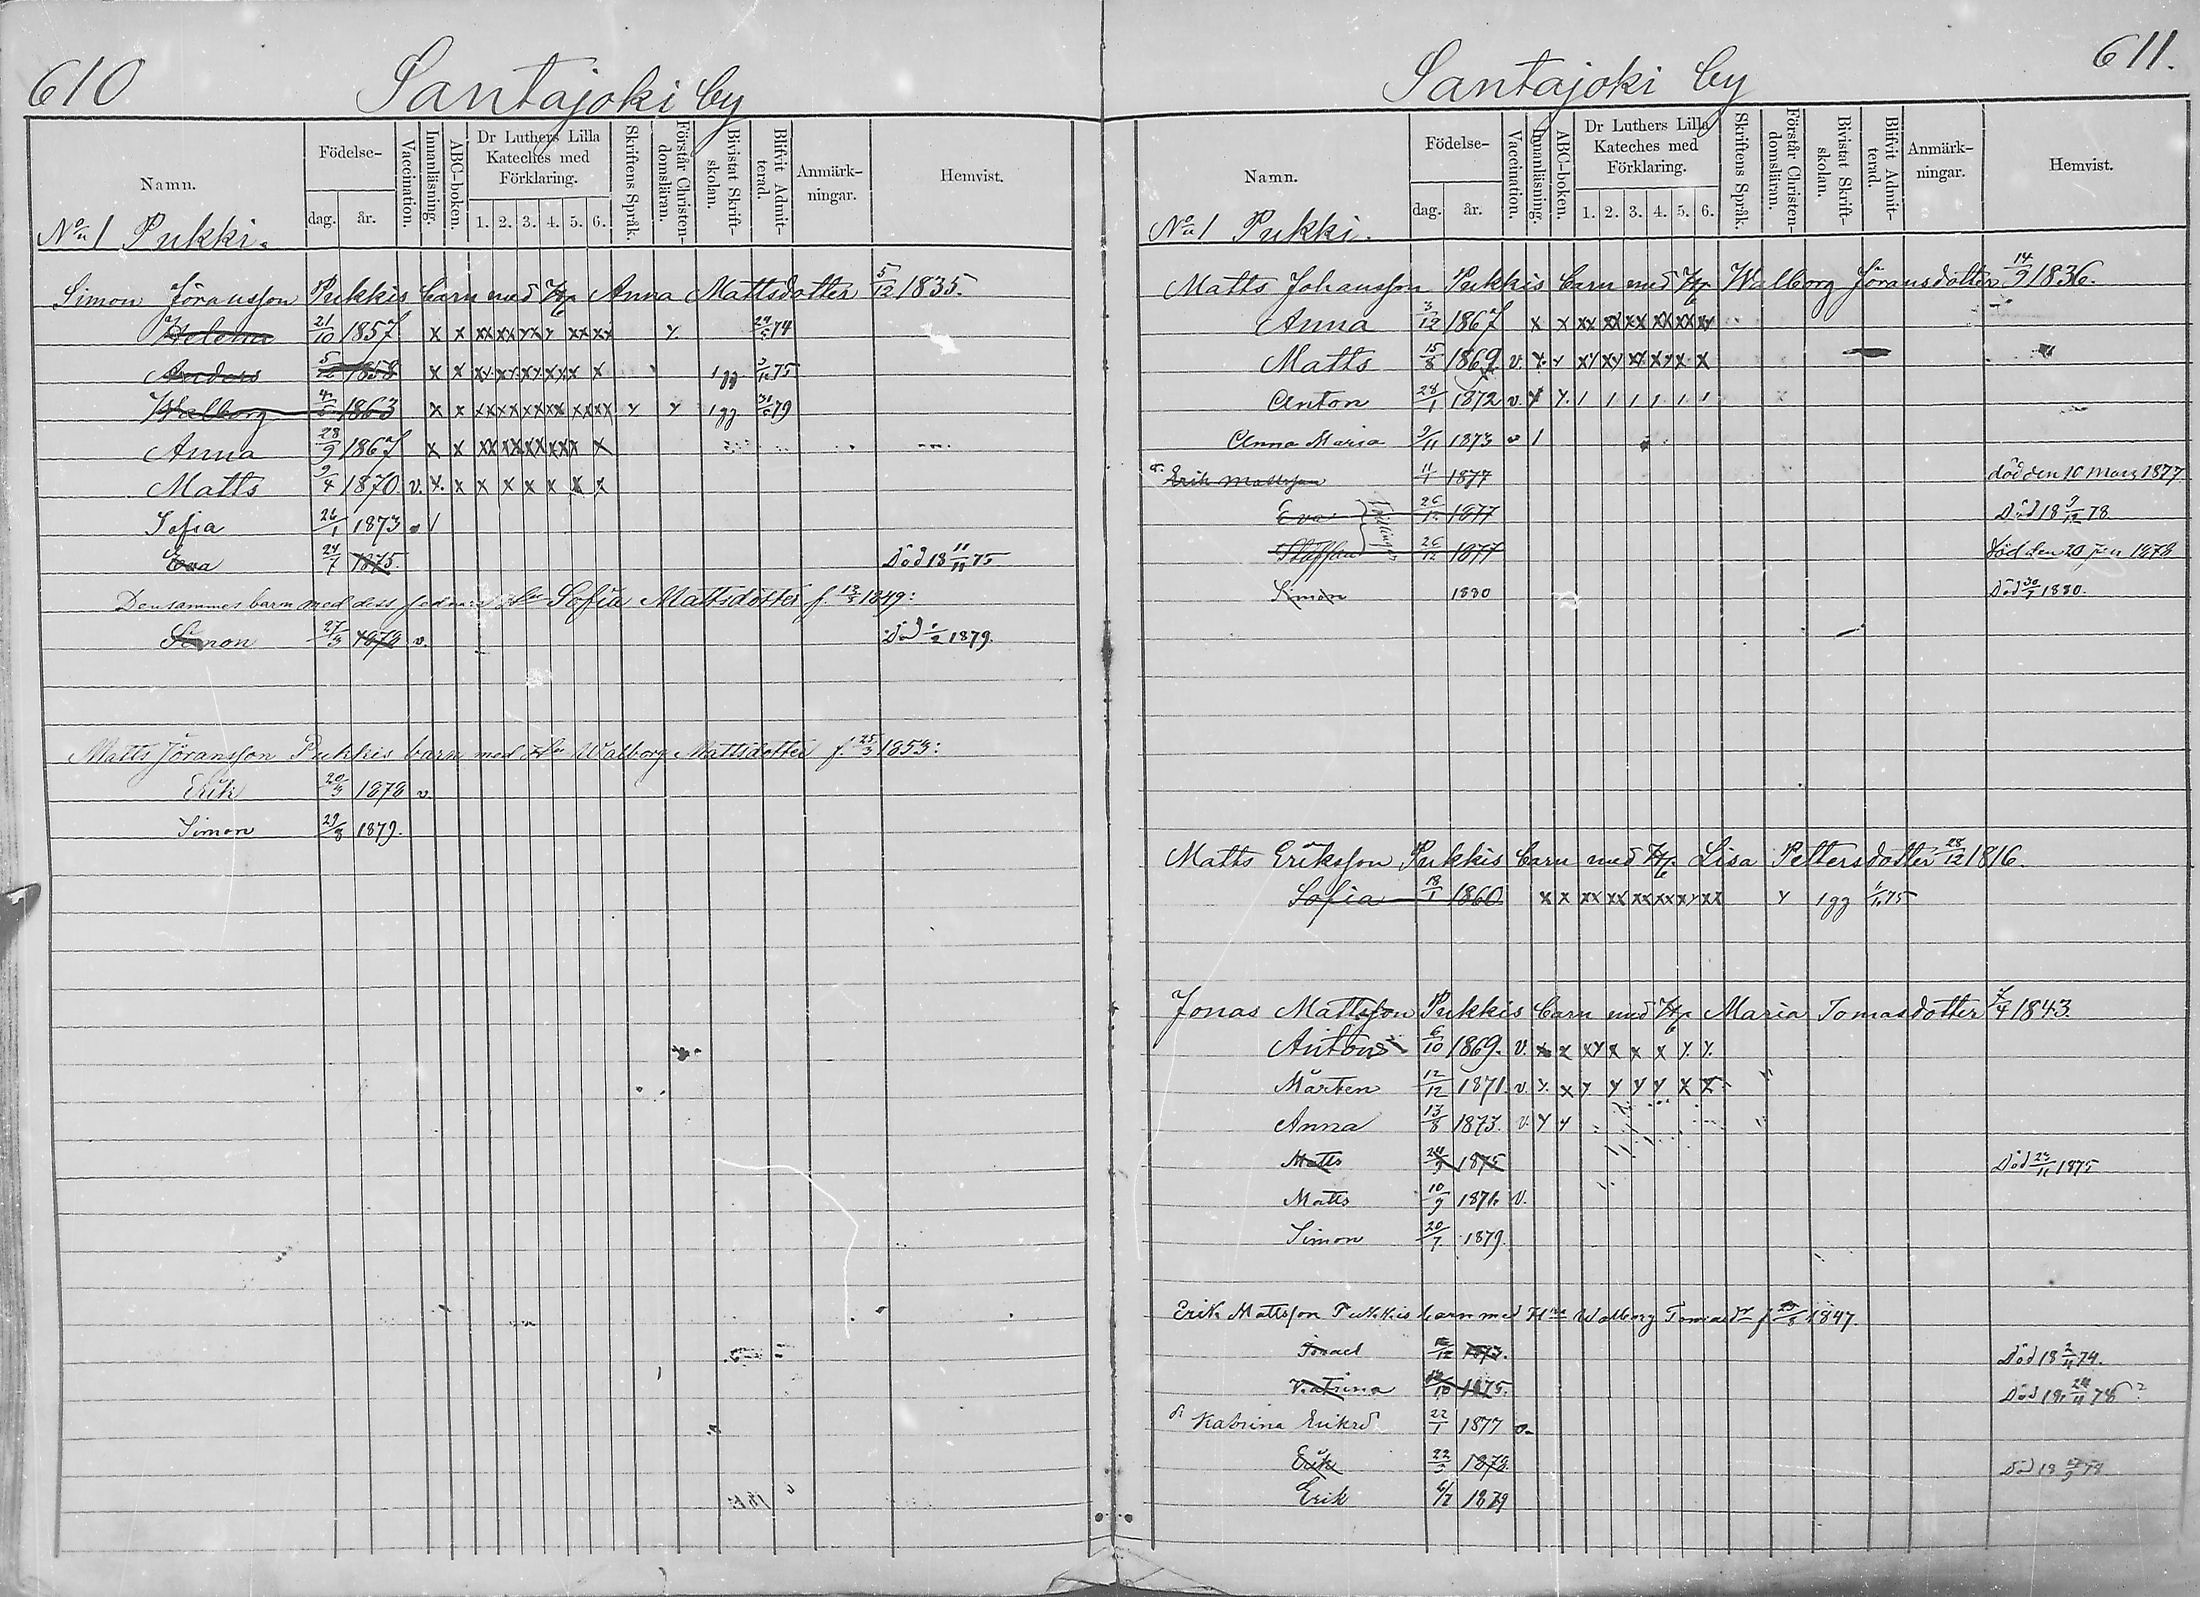 610
Santajoki by
Namn. Födelse- dag. år. Vaccination. Innanläsning. ABC-boken. Dr Luthers Lilla Kateches med Förklaring. 1. 2. 3. 4. 5. 6. Skriftens Språk. Förstår Christendomsläran. Bivistat Skriftskolan. Blifvit Admitterad. Anmärkningar. Hemvist.
No 1 Pukki.
Simon Jöransson Pukkis barn med Anna Mattsdotter 5/12 1835.
Helena 21/10 1857 x x xx xx xx y xx xx y. 74
Anders 5/12 1858 x x xx xx xx xx x x 1 gg 75
Walborg 1863 x x xx xx xx xx xx xx y y 1 gg 79
Anna 28/9 1867 x x xx xx xx xx xx x
Matts 9/4 1870 v. x. x x x x x x x
Sofia 26/1 1873 1
Eva 24/7 1875. Död 18 11/11 75
Densammes barn med dess Sofia Mattsdotter f. 1849:
Simon 27/3 1878 v. Död 1879.
Matts Jöransson Pukkis barn med Walborg Mattsdotter f. 25/3 1853:
Erik 20/3 1878 v.
Simon 29/8 1879.
611.
Santajoki by
Namn. Födelse- dag. år. Vaccination. Innanläsning. ABC-boken. Dr Luthers Lilla Kateches med Förklaring. 1. 2. 3. 4. 5. 6. Skriftens Språk. Förstår Christendomsläran. Bivistat Skriftskolan. Blifvit Admitterad. Anmärkningar. Hemvist.
No 1 Pukki.
Matts Johansson Pukkis barn med Walborg Jöransdotter 14/9 1836.
Anna 3/12 1867 x x xx xx xx xx xx xx
Matts 15/8 1869 v. x. y xy xy xx xx x x
Anton 28/1 1872 v. x y. 1 1 1 1 1 1
Anna Maria 9/11 1873 v 1
Erik Mattsson 11/1 1877 död den 10 Mars 1877
Eva 26/12 1877 Död 18 9/12 78
Tvillingar
Staffan 26/12 1877 död den 20 1878
Simon 1880 Död 1880.
Matts Eriksson Pukkis barn med Lisa Pettersdotter 28/12 1816.
Sofia 18/1 1860 x x xx xx xx xx xy xx y 1 gg 75
Jonas Mattsson Pukkis barn med Maria Tomasdotter 1843.
Anton 6/10 1869. v. x x xy x x x y. y.
Mårten 12/12 1871. v y. x y y y y x x
Anna 13/8 1873. v. y y
Matts 24/9 1875 Död 23/11 1875
Matts 10/9 1876 v.
Simon 20/7 1879.
Erik Mattsson Pukkis barn med Walborg Tomasdr f 1847.
Israel 1873. Död 18 74.
Katrina 1875. Död 18 76?
Katrina Eriksd. 22/1 1877 v.
Erik 22/3 1878. Död 18 78
Erik 6/7 1879